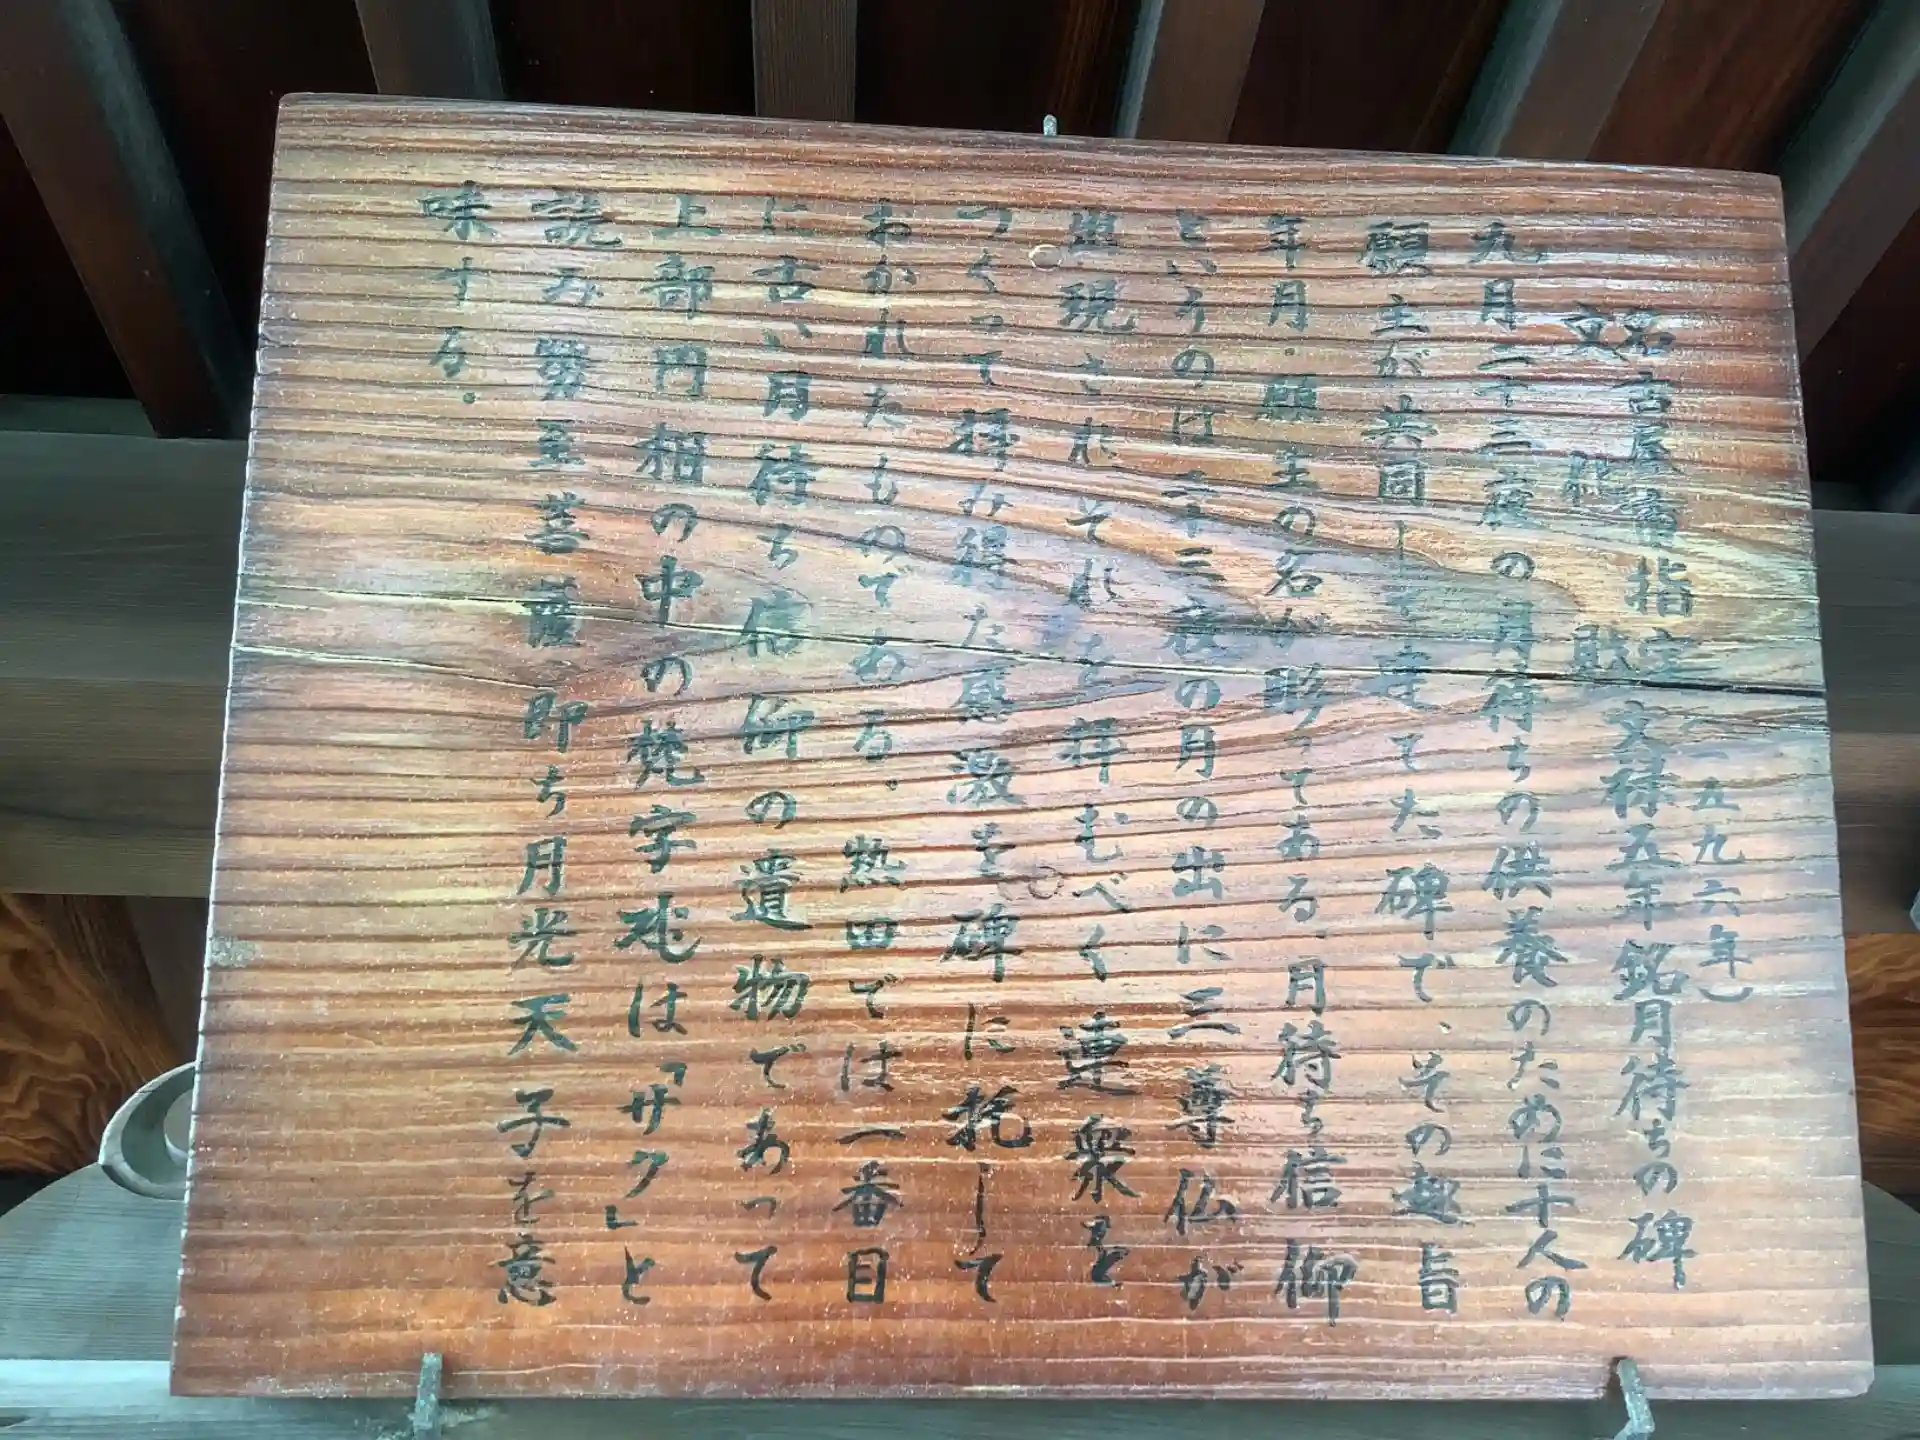 名古屋市指定
文化財
文禄五年銘月待ちの碑
(一五九六年)
九月二十三夜の月待ちの供養のために十人の
願主が共同して建てた碑で、その趣旨
年月・願主の名が彫ってある。月待ち信仰
というのは二十三夜の月の出に三尊仏が
出現されそれを拝むべく連衆を
つくって拝み得た感激を碑に托して
おかれたものである。熱田では一番目
に古い月待ち信仰の遺物であって
上部円相の中の梵字は「サク」と
読み勢至菩薩、即ち月光天子を意
味する。